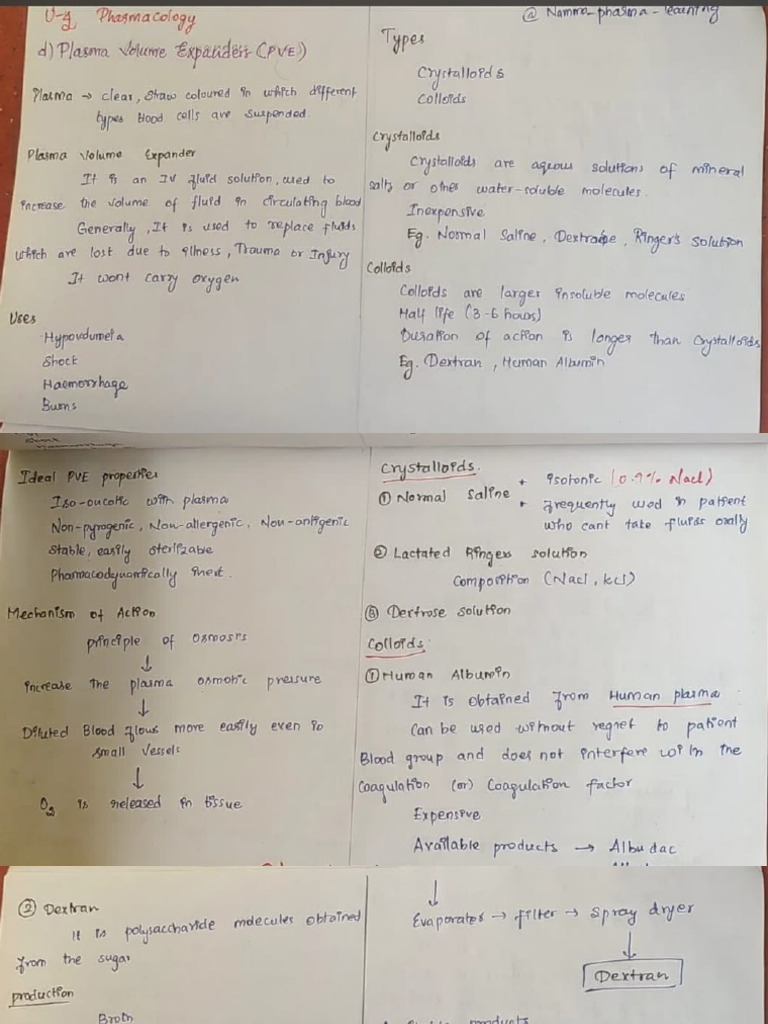 U-2 Pharmacology
d) Plasma Volume Expanders (PVE)
Plasma → clear, straw coloured in which different
types blood cells are suspended.
Plasma Volume Expander
It is an IV fluid solution, used to
increase the volume of fluid in circulating blood
Generally, It is used to replace fluids
which are lost due to illness, Trauma or Injury
It wont carry oxygen
Uses
Hypovolumeia
Shock
Haemorrhage
Burns
@ Namma-pharma-learning
Types
Crystalloids
Colloids
Crystalloids
Crystalloids are aqeous solutions of mineral
salts or other water-soluble molecules.
Inexpensive
Eg. Normal Saline, Dextrose, Ringer's solution
Colloids
Colloids are larger insoluble molecules
Half life (3-6 hours)
Duration of action is longer than crystalloids
Eg. Dextran, Human Albumin
Ideal PVE properties
Iso-oncotic with plasma
Non-pyrogenic, Non-allergenic, Non-antigenic
Stable, easily sterlizable
Pharmacodynamically inert.
Mechanism of Action
principle of osmosis
↓
increase the plasma osmotic pressure
↓
Diluted Blood flows more easily even in
small vessels
↓
O2 is released in tissue
Crystalloids.
① Normal Saline
* isotonic (0.9% Nacl)
* frequently used in patient
who cant take fluids orally
② Lactated Ringers solution
Composition (Nacl, kcl)
③ Dextrose solution
Colloids.
① Human Albumin
It is obtained from Human plasma
Can be used without regret to patient
Blood group and does not interfere with the
Coagulation (or) Coagulation factor
Expensive
Available products → Albudac
② Dextran
It is polysaccharide molecules obtained
from the sugar
production
Broth
↓
Evaporator → filter → spray dryer
↓
Dextran
products